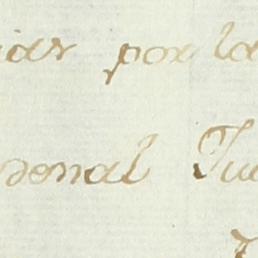 ias por la
sonal Tue